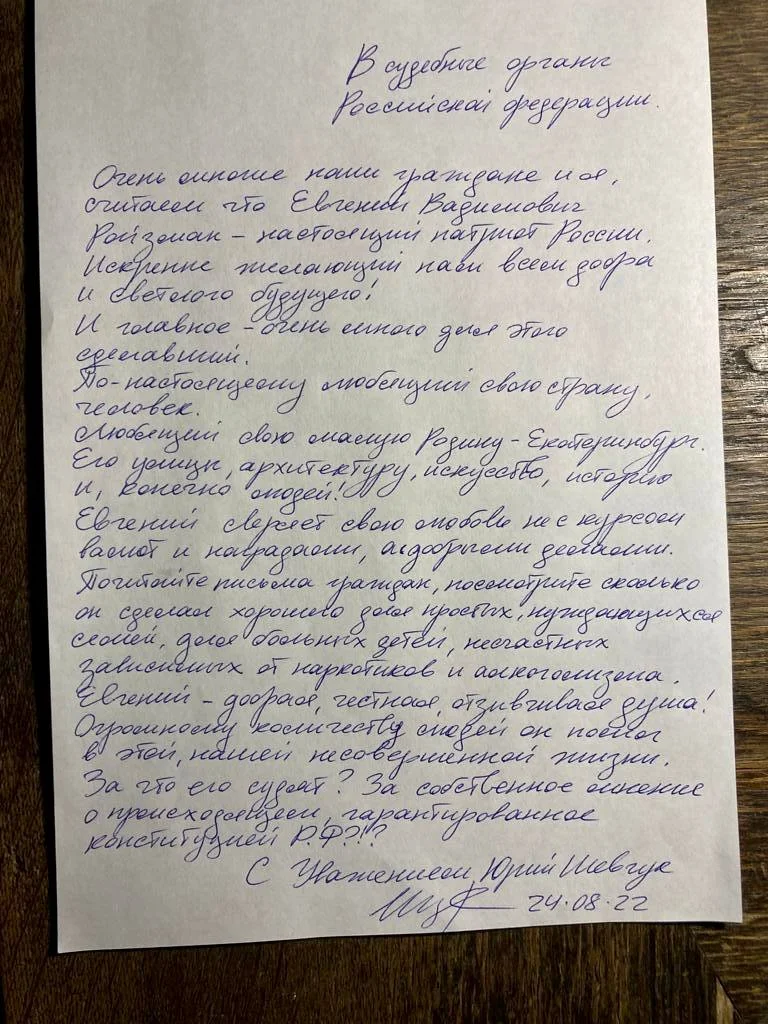 В судебные органы
Российской федерации.
Очень многие наши граждане и я,
считаем что Евгений Вадимович
Ройзман – настоящий патриот России.
Искренне желающий нам всем добра
и светлого будущего!
И главное – очень много для этого
сделавший.
По-настоящему любящий свою страну,
человек.
Любящий свою малую Родину – Екатеринбург.
Его улицы, архитектуру, искусство, историю
и, конечно людей!
Евгений меряет свою любовь не с курсом
валют и наградами, а добрыми делами.
Почитайте письма граждан, посмотрите сколько
он сделал хорошего для простых, нуждающихся
семей, для больных детей, несчастных
зависимых от наркотиков и алкоголизма.
Евгений – добрая, честная, отзывчивая душа!
Огромному количеству людей он помог
в этой, нашей несовершенной жизни.
За что его судят? За собственное мнение
о происходящем, гарантированное
конституцией Р.Ф?!?
С Уважением Юрий Шевчук
24.08.22